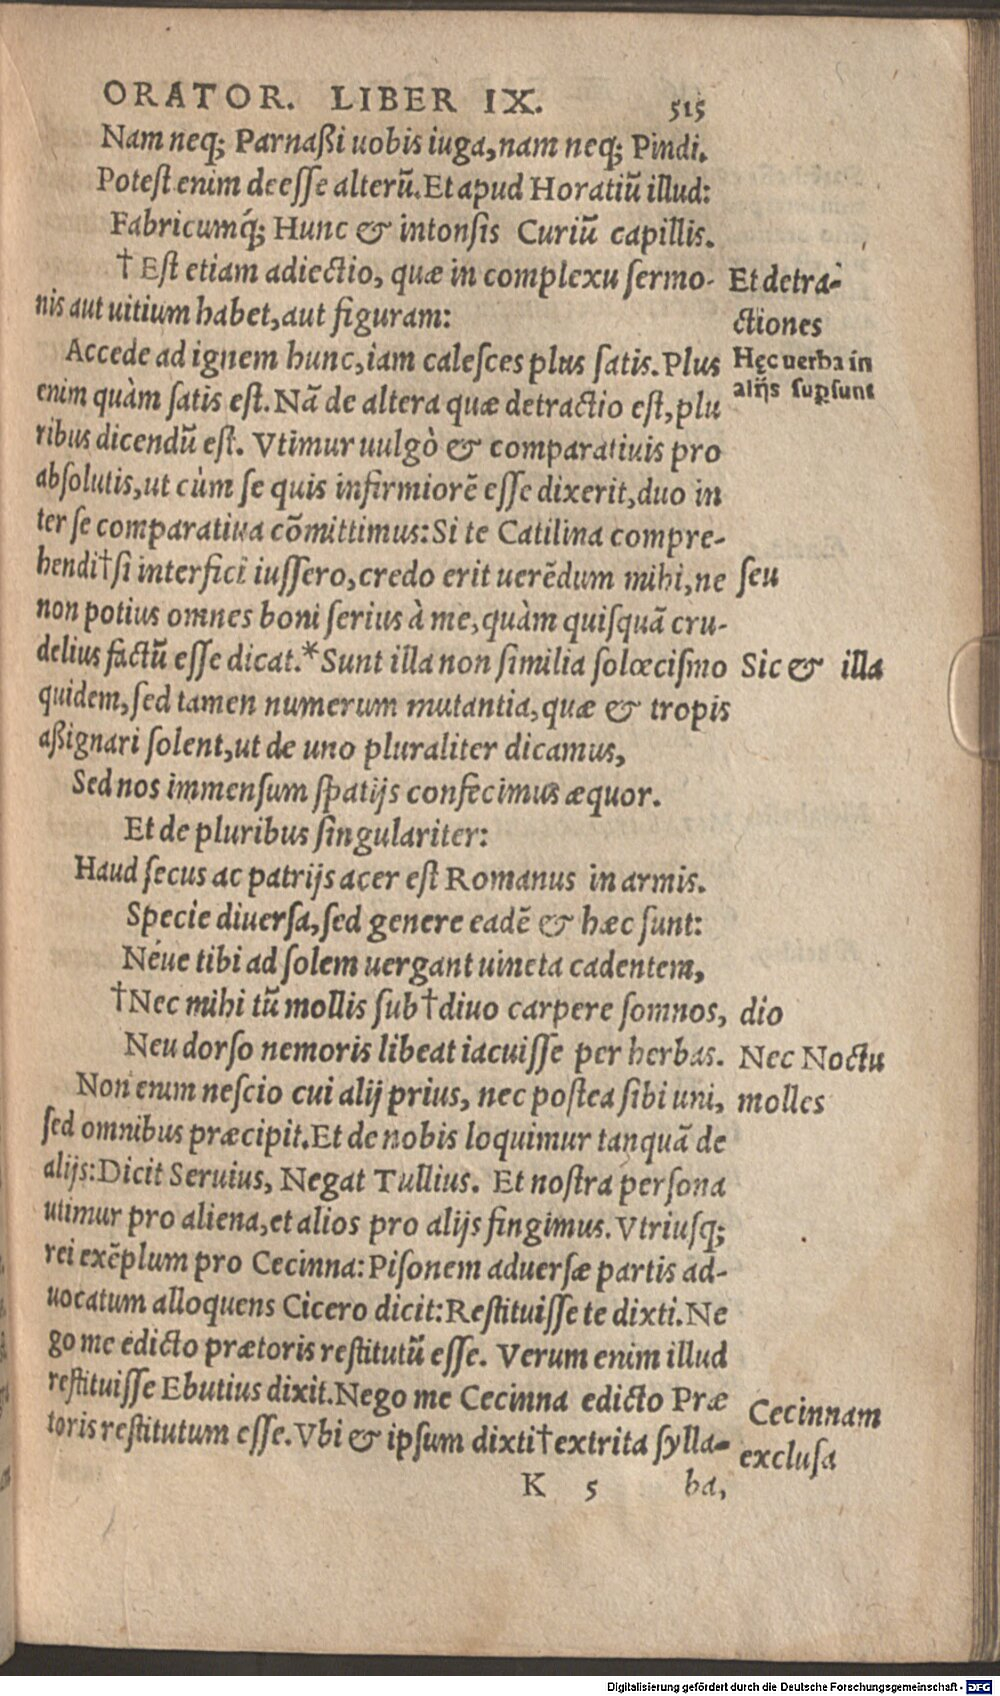 ORATOR. LIBER IX. 515
Nam neq; Parnaßi uobis iuga, nam neq; Pindi.
Potest enim deesse alterū. Et apud Horatiū illud:
Fabricumq́; Hunc & intonsis Curiū capillis.
†Est etiam adiectio, quæ in complexu sermo-
nis aut uitium habet, aut figuram:
Accede ad ignem hunc, iam calesces plus satis. Plus
enim quàm satis est. Nā de altera quæ detractio est, plu
ribus dicendū est. Vtimur uulgò & comparatiuis pro
absolutis, ut cùm se quis infirmiorē esse dixerit, duo in
ter se comparatiua cōmittimus: Si te Catilina compre-
hendi†si interfici iussero, credo erit uerēdum mihi, ne
non potius omnes boni serius à me, quàm quisquā cru-
delius factū esse dicat.*Sunt illa non similia solœcismo
quidem, sed tamen numerum mutantia, quæ & tropis
aßignari solent, ut de uno pluraliter dicamus,
Sed nos immensum spatijs confecimus æquor.
Et de pluribus singulariter:
Haud secus ac patrijs acer est Romanus in armis.
Specie diuersa, sed genere eadē & hæc sunt:
Néue tibi ad solem uergant uineta cadentem,
†Nec mihi tū mollis sub†diuo carpere somnos,
Neu dorso nemoris libeat iacuisse per herbas.
Non enim nescio cui alij prius, nec postea sibi uni,
sed omnibus præcipit. Et de nobis loquimur tanquā de
alijs: Dicit Seruius, Negat Tullius. Et nostra persona
utimur pro aliena, et alios pro alijs fingimus. Vtriusq;
rei exēplum pro Cecinna: Pisonem aduersæ partis ad-
uocatum alloquens Cicero dicit: Restituisse te dixti. Ne
go me edicto prætoris restitutū esse. Verum enim illud
restituisse Ebutius dixit. Nego me Cecinna edicto Præ
toris restitutum esse. Vbi & ipsum dixti†extrita sylla-
K 5 ba,
Et detra-
ctiones
Hęc uerba in
alijs supsunt
seu
Sic & illa
dio
Nec Noctu
molles
Cecinnam
exclusa
Digitalisierung gefördert durch die Deutsche Forschungsgemeinschaft - DFG